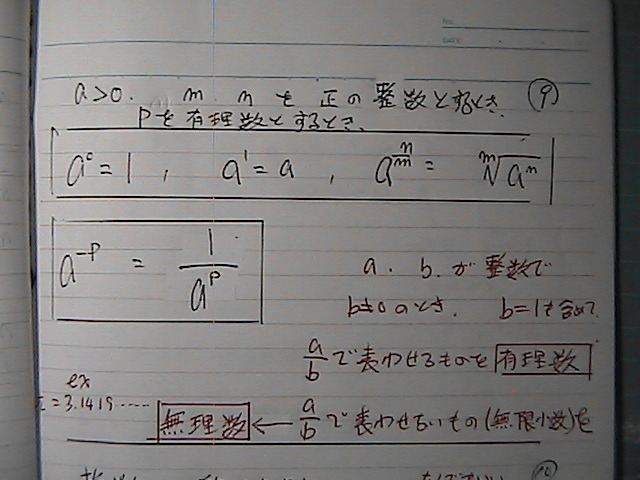 No.
DATE
a>0. m. nを正の整数とするとき. ⑨
Pを有理数とするとき、
a⁰=1 , a¹=a , a^(n/m) = ᵐ√aⁿ
a^(-P) = 1/a^P
a. b. が整数で
b≠0のとき. b=1も含めて
a/bで表わせるものを有理数
ex
π=3.1419……
無理数 ← a/bで表わせないもの(無限小数)を